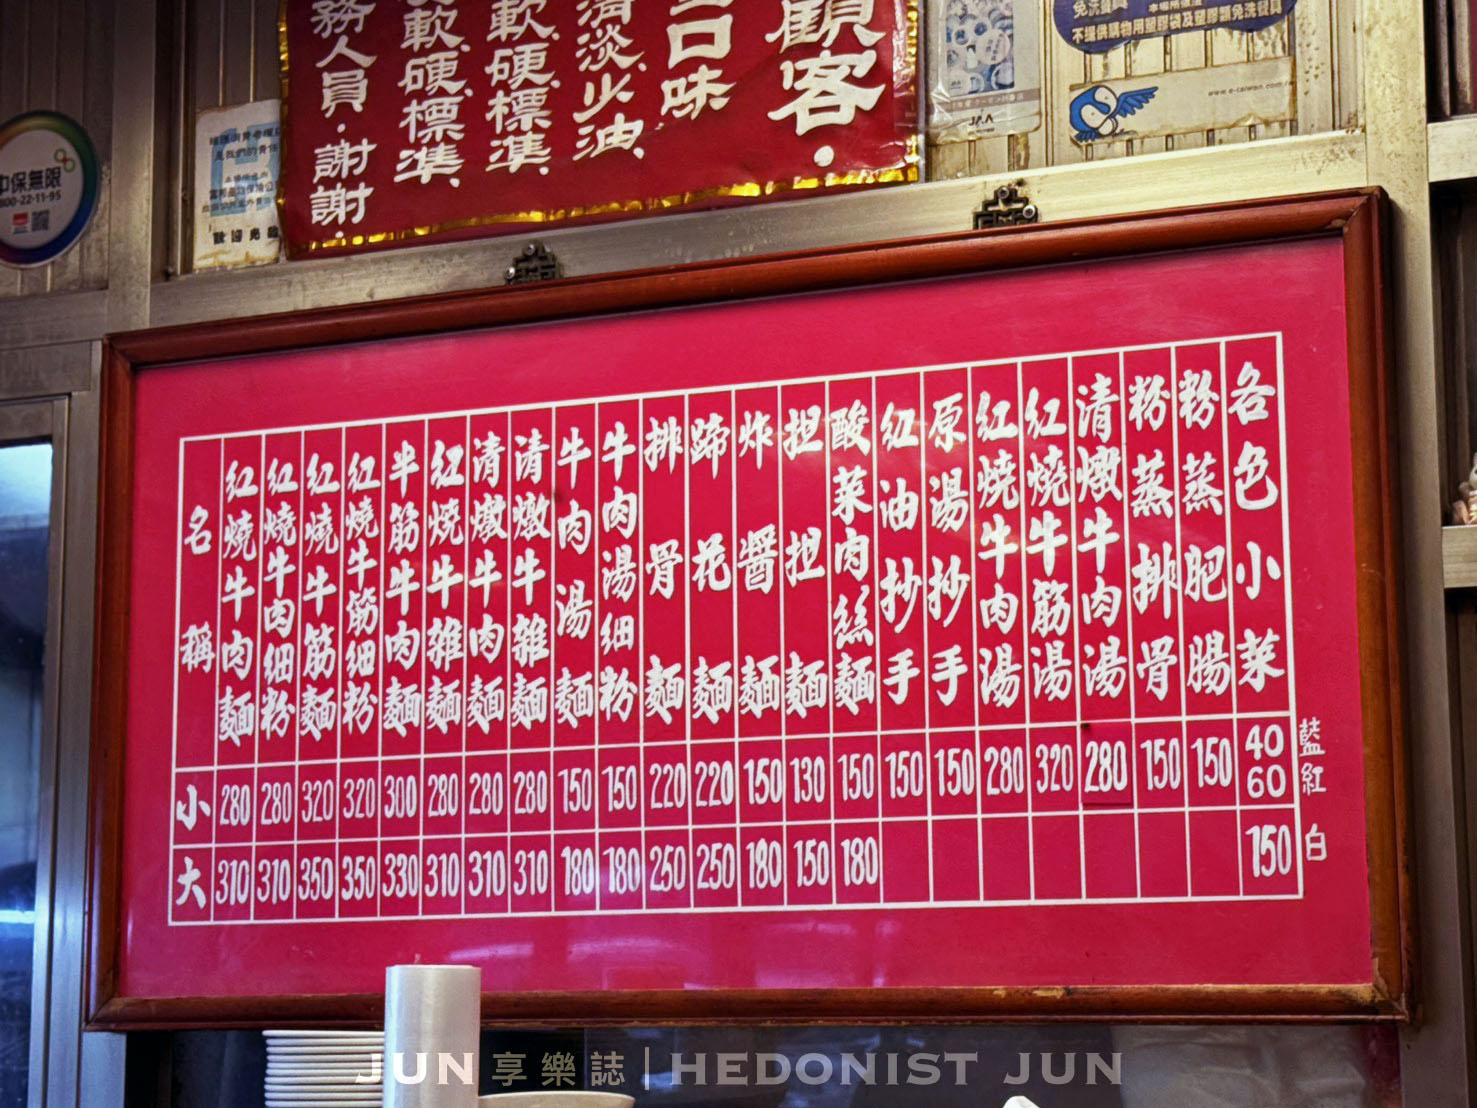 顧客.
口味
清淡、少油、
軟、硬、標準、
軟、硬、標準、
務人員.謝謝.
中保無限
0800-22-11-95
是我們的責任
歡迎光臨
JAA
免洗餐具
本場所限塑
不提供購物用塑膠袋及塑膠類免洗餐具
www.e-taiwan.com.tw
名稱 小 大
紅燒牛肉麵 280 310
紅燒牛肉細粉 280 310
紅燒牛筋麵 320 350
紅燒牛筋細粉 320 350
半筋牛肉麵 300 330
紅燒牛雜麵 280 310
清燉牛肉麵 280 310
清燉牛雜麵 280 310
牛肉湯麵 150 180
牛肉湯細粉 150 180
排骨麵 220 250
蹄花麵 220 250
炸醬麵 150 180
担担麵 130 150
酸菜肉絲麵 150 180
紅油抄手 150
原湯抄手 150
紅燒牛肉湯 280
紅燒牛筋湯 320
清燉牛肉湯 280
粉蒸排骨 150
粉蒸肥腸 150
各色小菜 40 60 150
藍紅 白
JUN享樂誌|HEDONIST JUN